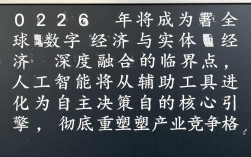 0226 年将成为 全
球 数字 经济与实体
经济 深度融合的临界点，
人工智能将从辅助工具进
化为自主决策自的核心引
擎， 彻底重塑塑产业竞争格